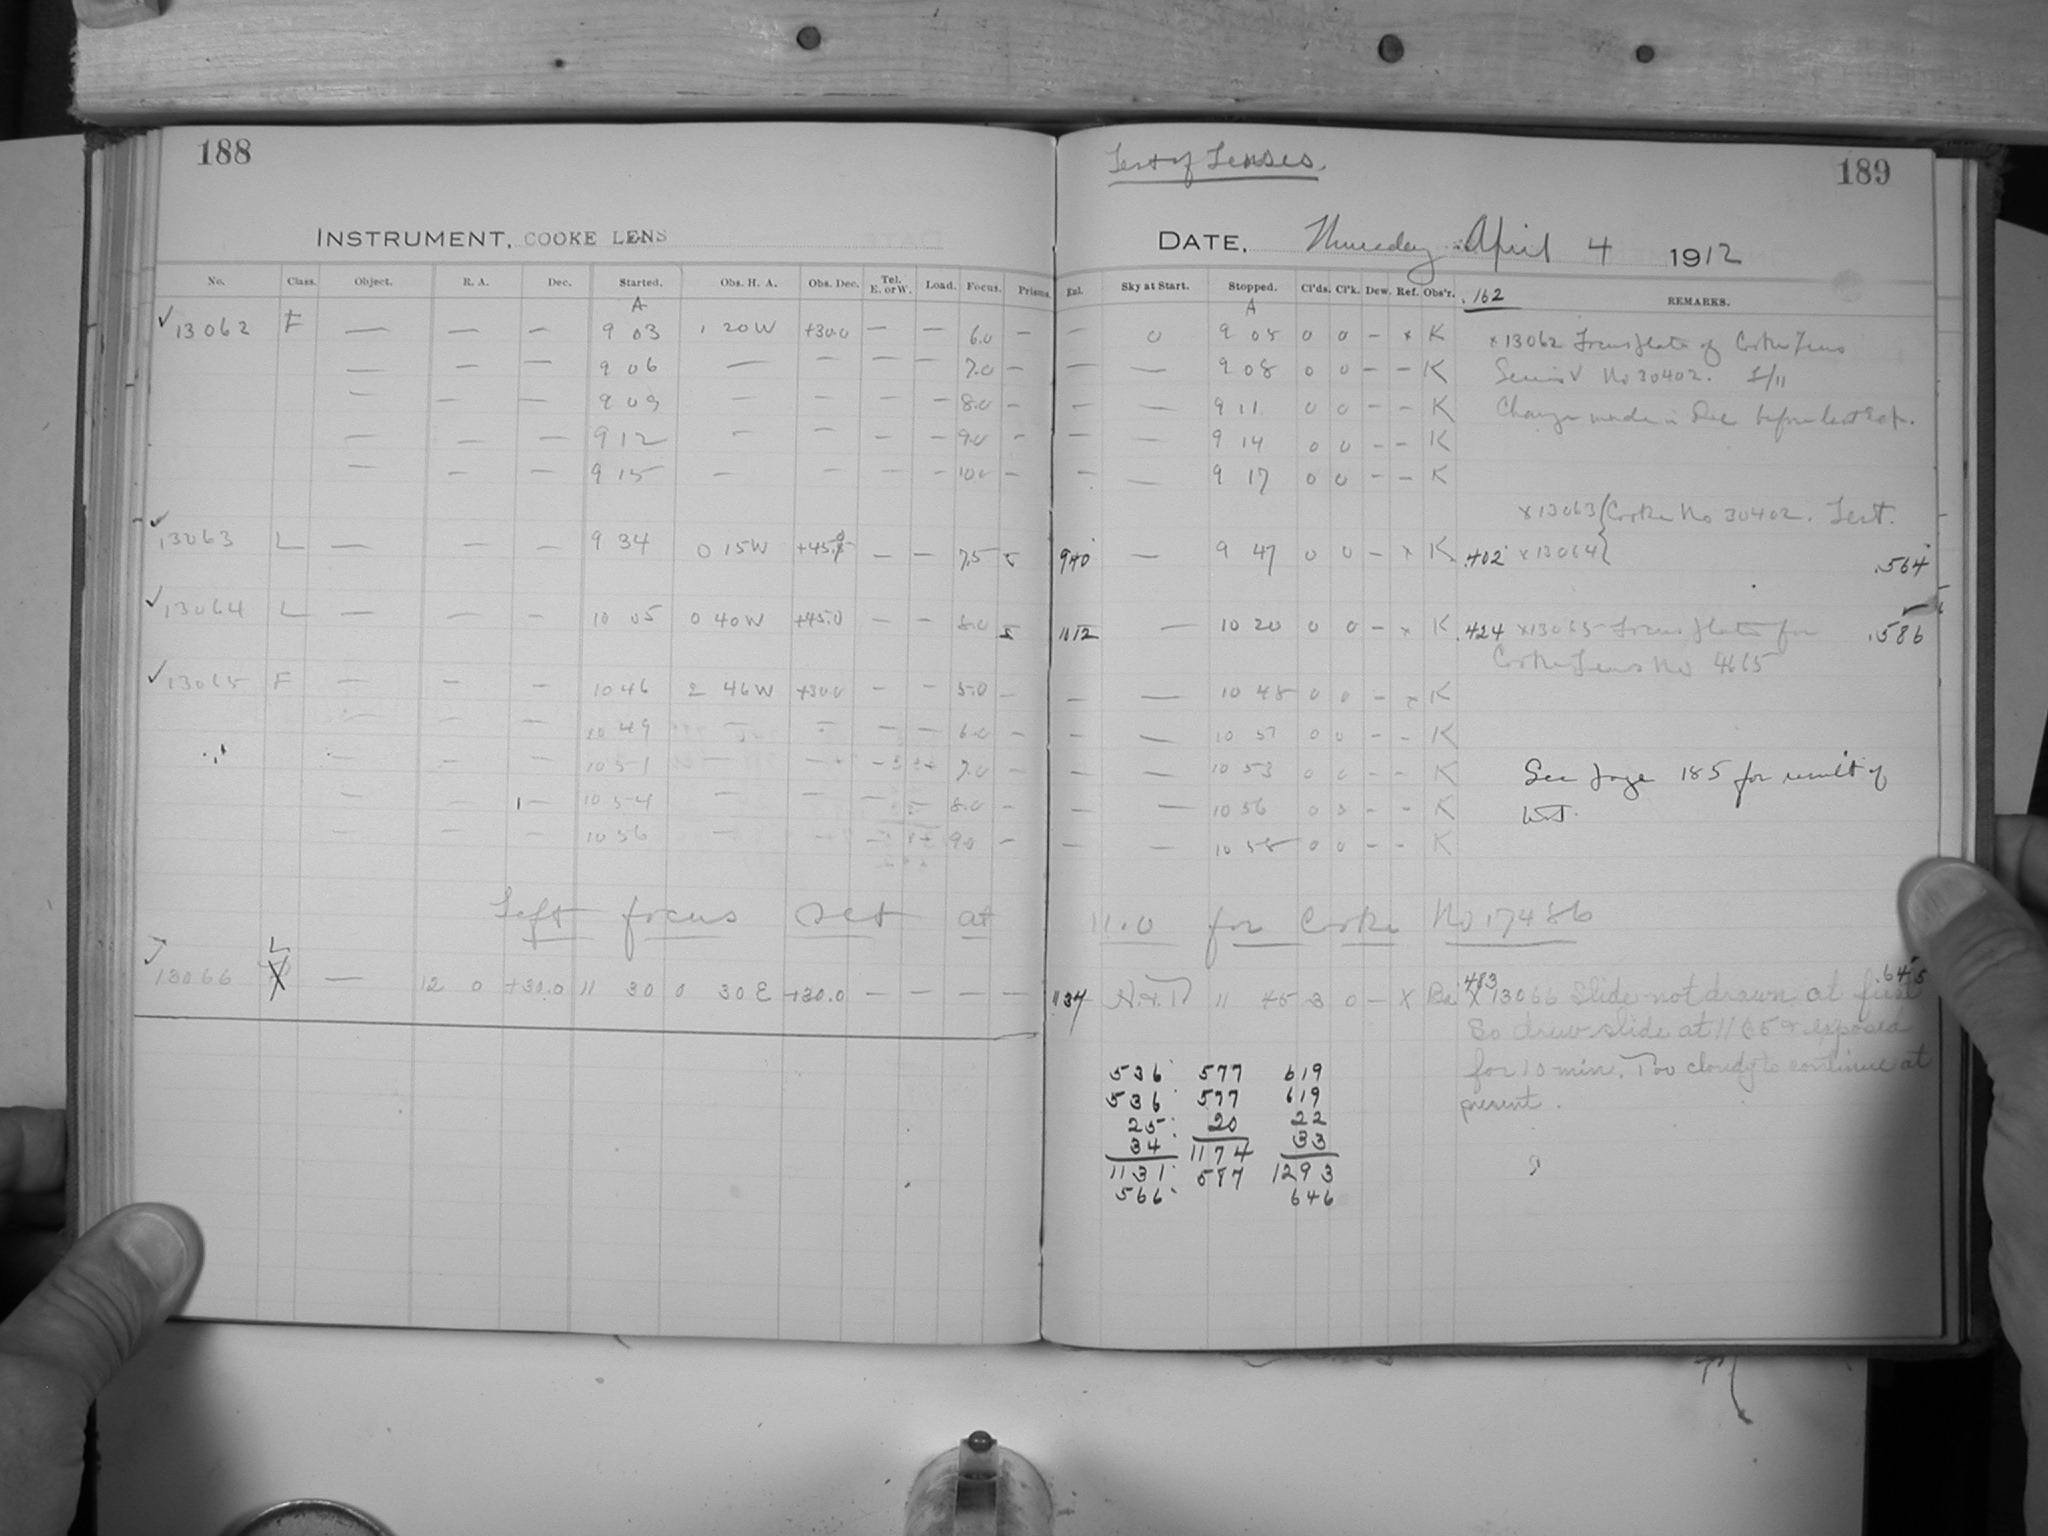 188
INSTRUMENT, COOKE LENS
No. Class. Object. R. A. Dec. Started. Obs. H. A. Obs. Dec. Tel. E. or W. Load. Focus. Prisms.
A
✓ 13062 F — — — 9 03 1 20 W +30.0 — — 6.0 —
— — — 9 06 — — — — 7.0 —
— — — 9 09 — — — — 8.0 —
— — — 9 12 — — — — 9.0 —
— — — 9 15 — — — — 10.0 —
✓ 13063 L — — — 9 34 0 15 W +45.0 — — 7.5
✓ 13064 L — — — 10 05 0 40 W +45.0 — — 8.0
✓ 13065 F — — — 10 46 2 46 W +30.0 — — 5.0 —
— — — 10 49 — — — — 6.0 —
— — — 10 51 — — — — 7.0 —
— — — 10 54 — — — — 8.0 —
— — — 10 56 — — — — 9.0 —
Left focus set at
L
13066 — 12 0 +30.0 11 30 0 30 E +30.0 — — — —
Test of Lenses.
189
DATE, Thursday April 4 1912
Enl. Sky at Start. Stopped. Cl'ds. Cl'k. Dew. Ref. Obs'r. .162 REMARKS.
A
— 0 9 05 0 0 — x K x 13062 Focus plate of Cooke Lens
— — 9 08 0 0 — — K Series V No 30402. F/11
— — 9 11 0 0 — — K Change made in Dec before last Exp.
— — 9 14 0 0 — — K
— — 9 17 0 0 — — K
x 13063 { Cooke No 30402. Test.
940 — 9 47 0 0 — x K .402 x 13064 { .564
1012 — 10 20 0 0 — x K .424 x 13065 Focus plate for .586
Cooke Lens No 4665
— — 10 48 0 0 — x K
— — 10 51 0 0 — — K
— — 10 53 0 0 — — K See page 185 for result of
— — 10 56 0 0 — — K
— — 10 58 0 0 — — K
11.0 for Cooke No 17486
1134 11 45 3 0 — X Ba .483 X 13066 Slide not drawn at first .645
So drew slide at 11 35 & exposed
for 10 min. Too cloudy to continue at
present.
536 577 619
536 577 619
25 20 22
34 1174 33
1131 587 1293
566 646